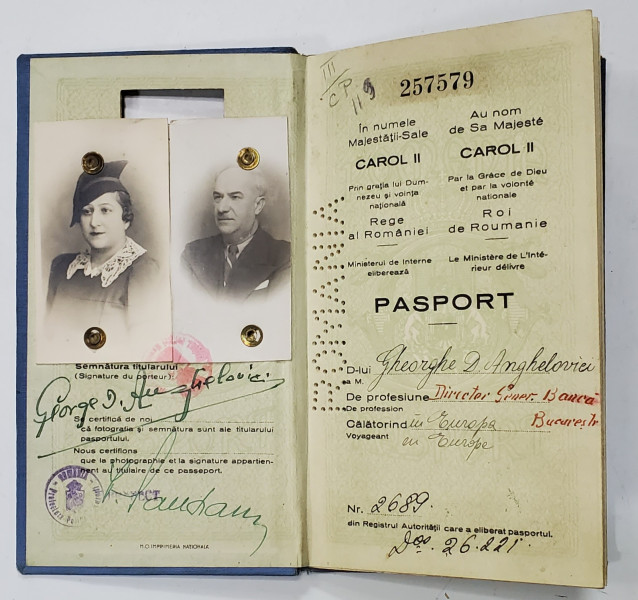 Semnătura titularului
(Signature du porteur):
George D. Anghelovici
Se certifică de noi
că fotografia și semnătura sunt ale titularului
pasportului.
Nous certifions
que la photographie et la signature appartien-
nent au titulaire de ce passeport.
M.O. IMPRIMERIA NAȚIONALĂ
III
CP
119
257579
În numele
Majestății-Sale
CAROL II
Prin grația lui Dum-
nezeu și voința
națională
Rege
al României
Ministerul de Interne
eliberează
Au nom
de Sa Majesté
CAROL II
Par la Grâce de Dieu
et par la volonté
nationale
Roi
de Roumanie
Le Ministère de L'Inté-
rieur délivre
ROMANIA
PASPORT
D-lui Gheorghe D. Anghelovici
a M.
De profesiune Director Gener. Bancă
De profession București
Călătorind în Europa
Voyageant en Europe
Nr. 2689
din Registrul Autorității care a eliberat pasportul.
Dos. 26.221.